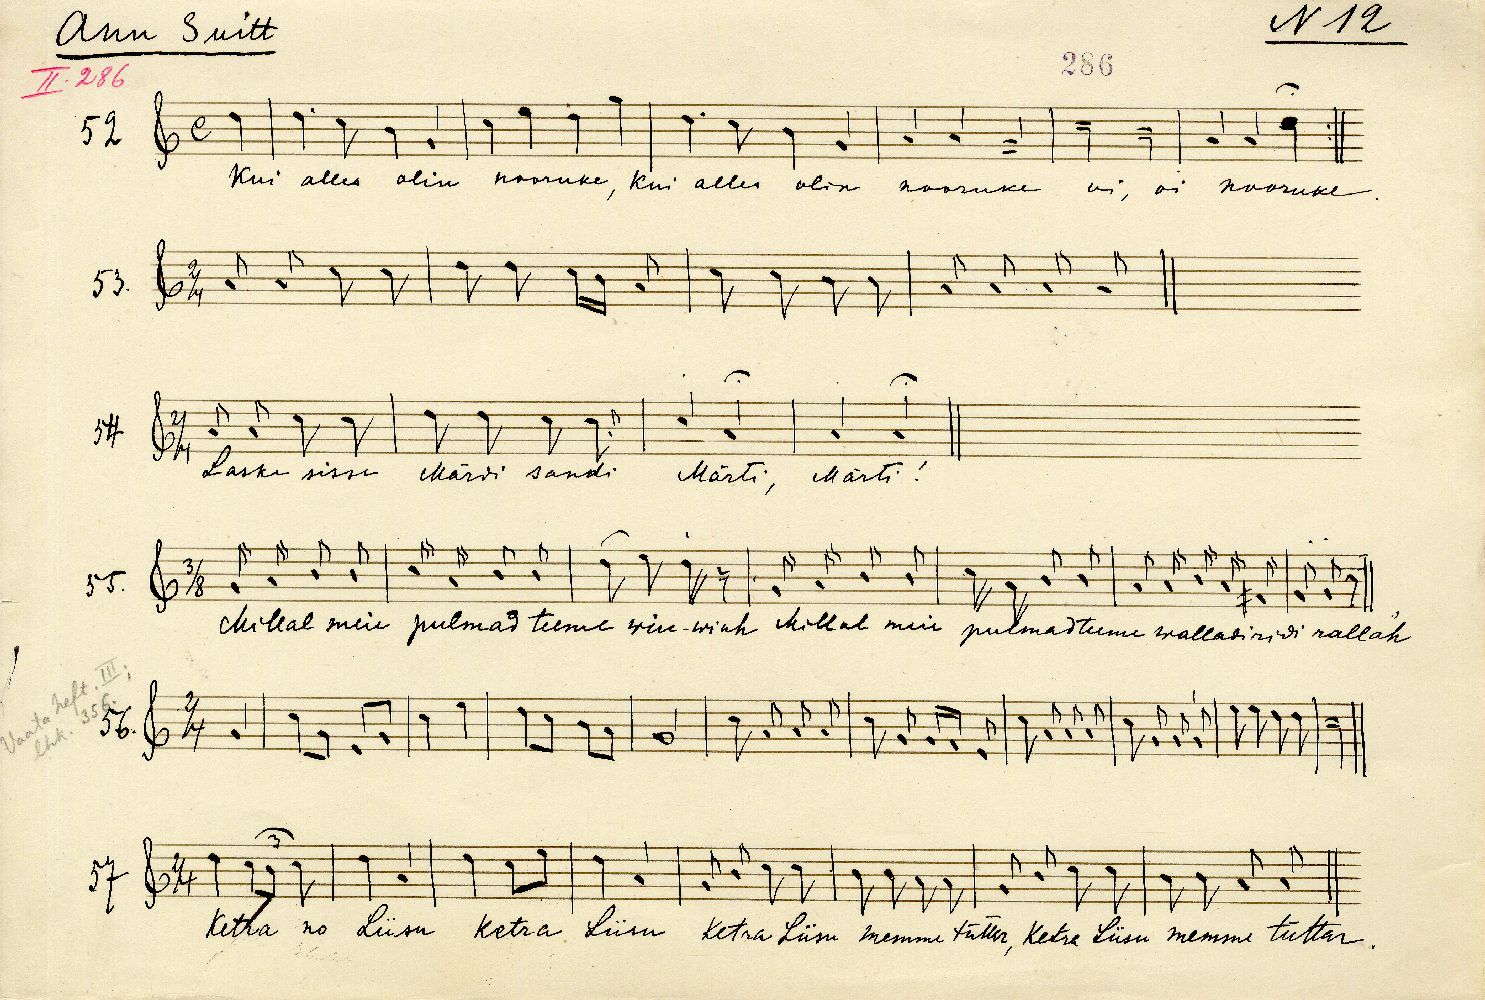 Ann Suitt
N 12
II. 286
286
52
Kui alles olin nooruke, Kui alles olin nooruke oi, oi nooruke.
53.
54
Laske sisse Märdi sandi Märti, Märti!
55.
Millal meie pulmad teeme wiu-wiuh Millal meie pulmad teeme walladiridi rallah
Vaata heft. III;
lhk. 356.
56.
57
Ketra no Liisu Ketra Liisu Ketra Liisu memme tüttar, Ketra Liisu memme tüttar.